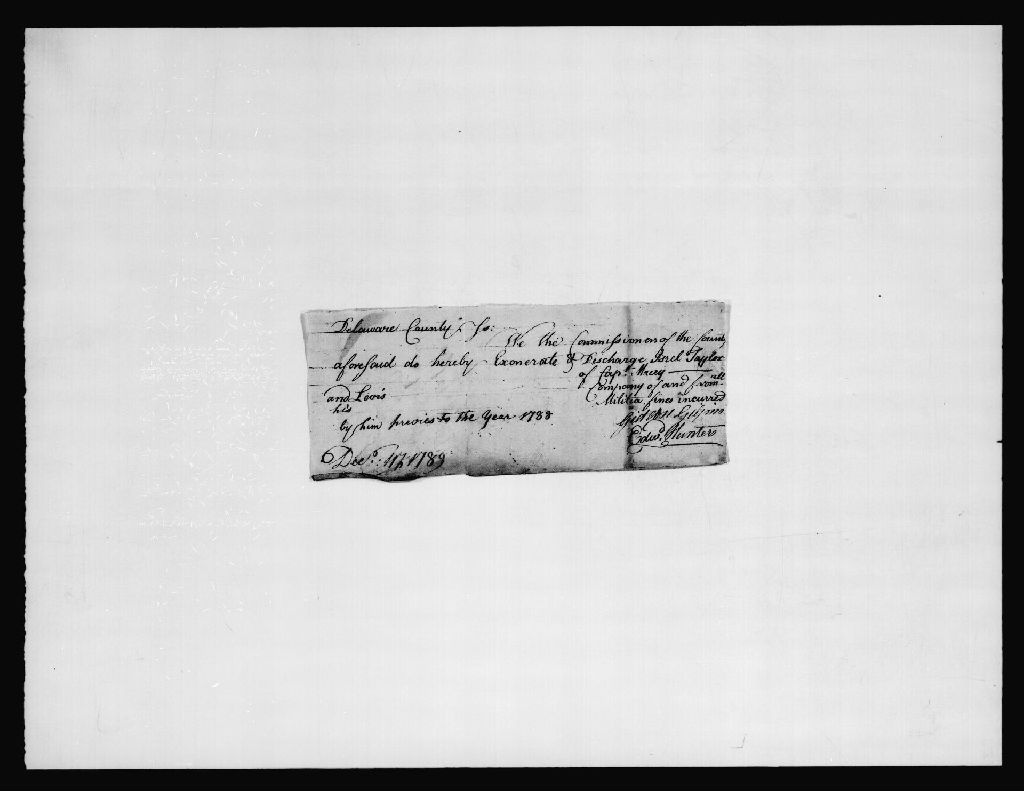 Delaware County Ss:
We the Commissioners of the County
aforesaid do hereby Exonerate & Discharge Taylor
of Capt.
Company of and from all
and Lovis Militia fines incurred
his
by him previes to the Year 1788
Edwd. Hunter
Decr. 11th 1789